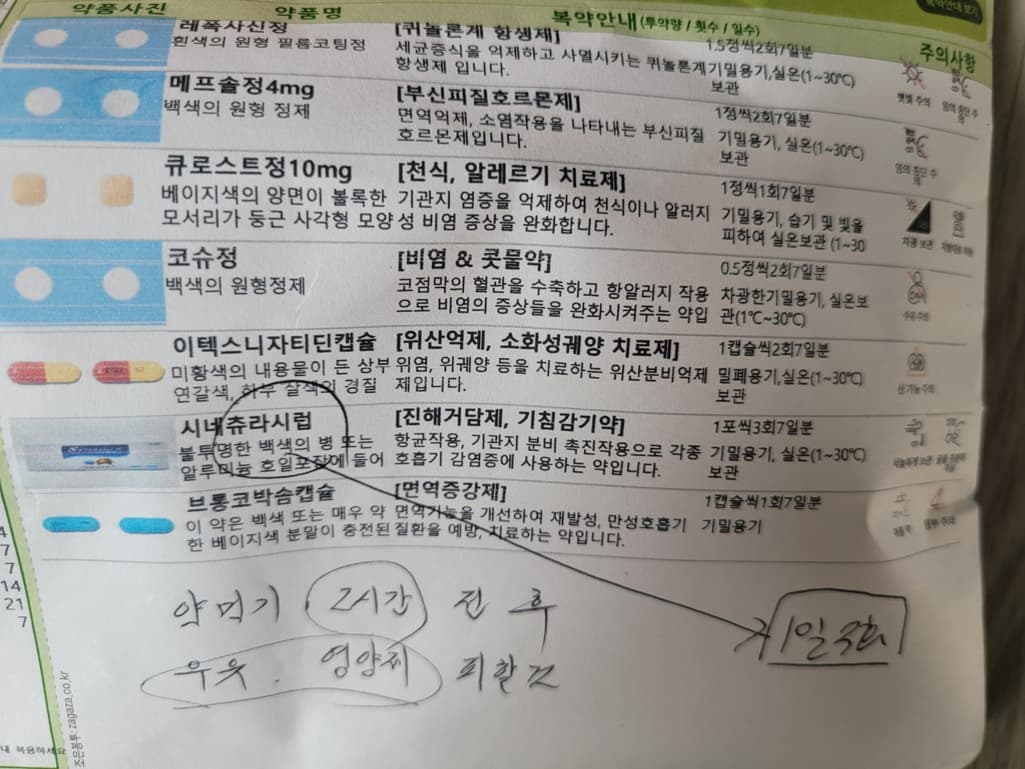 복약안내 보기
약품사진 약품명 복약안내(투약량 / 횟수 / 일수) 주의사항
레폭사신정 [퀴놀론계 항생제] 1.5정씩2회7일분
흰색의 원형 필름코팅정 세균증식을 억제하고 사멸시키는 퀴놀론계 기밀용기,실온(1~30℃)
항생제 입니다. 보관
메프솔정4mg [부신피질호르몬제] 1정씩2회7일분
백색의 원형 정제 면역억제, 소염작용을 나타내는 부신피질 기밀용기,실온(1~30℃)
호르몬제입니다. 보관
큐로스트정10mg [천식, 알레르기 치료제] 1정씩1회7일분
베이지색의 양면이 볼록한 기관지 염증을 억제하여 천식이나 알러지 기밀용기, 습기 및 빛을
모서리가 둥근 사각형 모양 성 비염 증상을 완화합니다. 피하여 실온보관 (1~30
차광 보관
코슈정 [비염 & 콧물약] 0.5정씩2회7일분
백색의 원형정제 코점막의 혈관을 수축하고 항알러지 작용 차광한기밀용기, 실온보
으로 비염의 증상들을 완화시켜주는 약입 관(1℃~30℃)
이텍스니자티딘캡슐 [위산억제, 소화성궤양 치료제] 1캡슐씩2회7일분
미황색의 내용물이 든 상부 위염, 위궤양 등을 치료하는 위산분비억제 밀폐용기,실온(1~30℃)
연갈색, 하부 살색의 경질 제입니다. 보관
시네츄라시럽 [진해거담제, 기침감기약] 1포씩3회7일분
불투명한 백색의 병 또는 항균작용, 기관지 분비 촉진작용으로 각종 기밀용기, 실온(1~30℃)
알루미늄 호일포장에 들어 호흡기 감염증에 사용하는 약입니다. 보관
브롱코박솜캡슐 [면역증강제] 1캡슐씩1회7일분
이 약은 백색 또는 매우 약 면역기능을 개선하여 재발성, 만성호흡기 기밀용기
한 베이지색 분말이 충전된 질환을 예방, 치료하는 약입니다.
약먹기 2시간 전 후
우유. 영양제 피할것
1일 3회
4
7
7
14
21
7
내 복용하세요
조은봉투: zagaza.co.kr